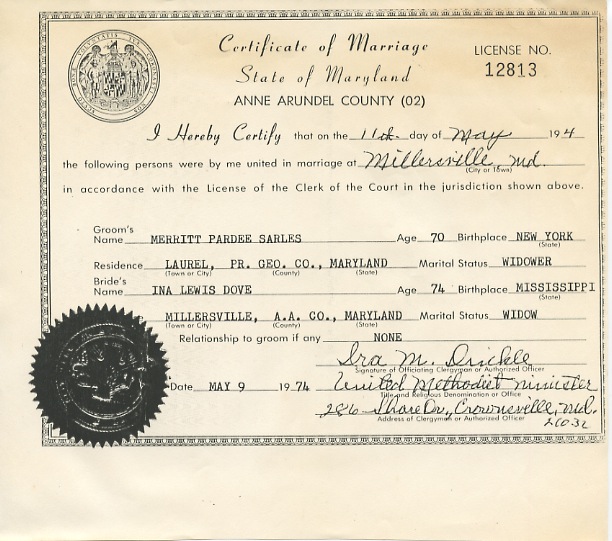 Certificate of Marriage
State of Maryland
ANNE ARUNDEL COUNTY (02)
LICENSE NO.
12813
I Hereby Certify that on the 11th day of May 194
the following persons were by me united in marriage at Millersville, Md.
(City or Town)
in accordance with the License of the Clerk of the Court in the jurisdiction shown above.
Groom's Name MERRITT PARDEE SARLES Age 70 Birthplace NEW YORK
(State)
Residence LAUREL, PR. GEO. CO., MARYLAND Marital Status WIDOWER
(Town or City) (County) (State)
Bride's Name INA LEWIS DOVE Age 74 Birthplace MISSISSIPPI
(State)
MILLERSVILLE, A.A. CO., MARYLAND Marital Status WIDOW
(Town or City) (County) (State)
Relationship to groom if any NONE
Ira M.
Signature of Officiating Clergyman or Authorized Officer
Date MAY 9 1974 United Methodist minister
Title and Religious Denomination or Office
286 Shore Dr., Crownsville, Md.
Address of Clergyman or Authorized Officer